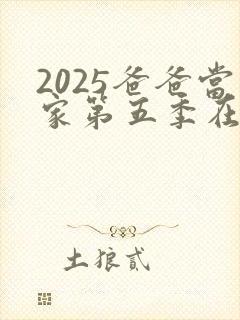 2025爸爸當
家第五季在
土狼貳